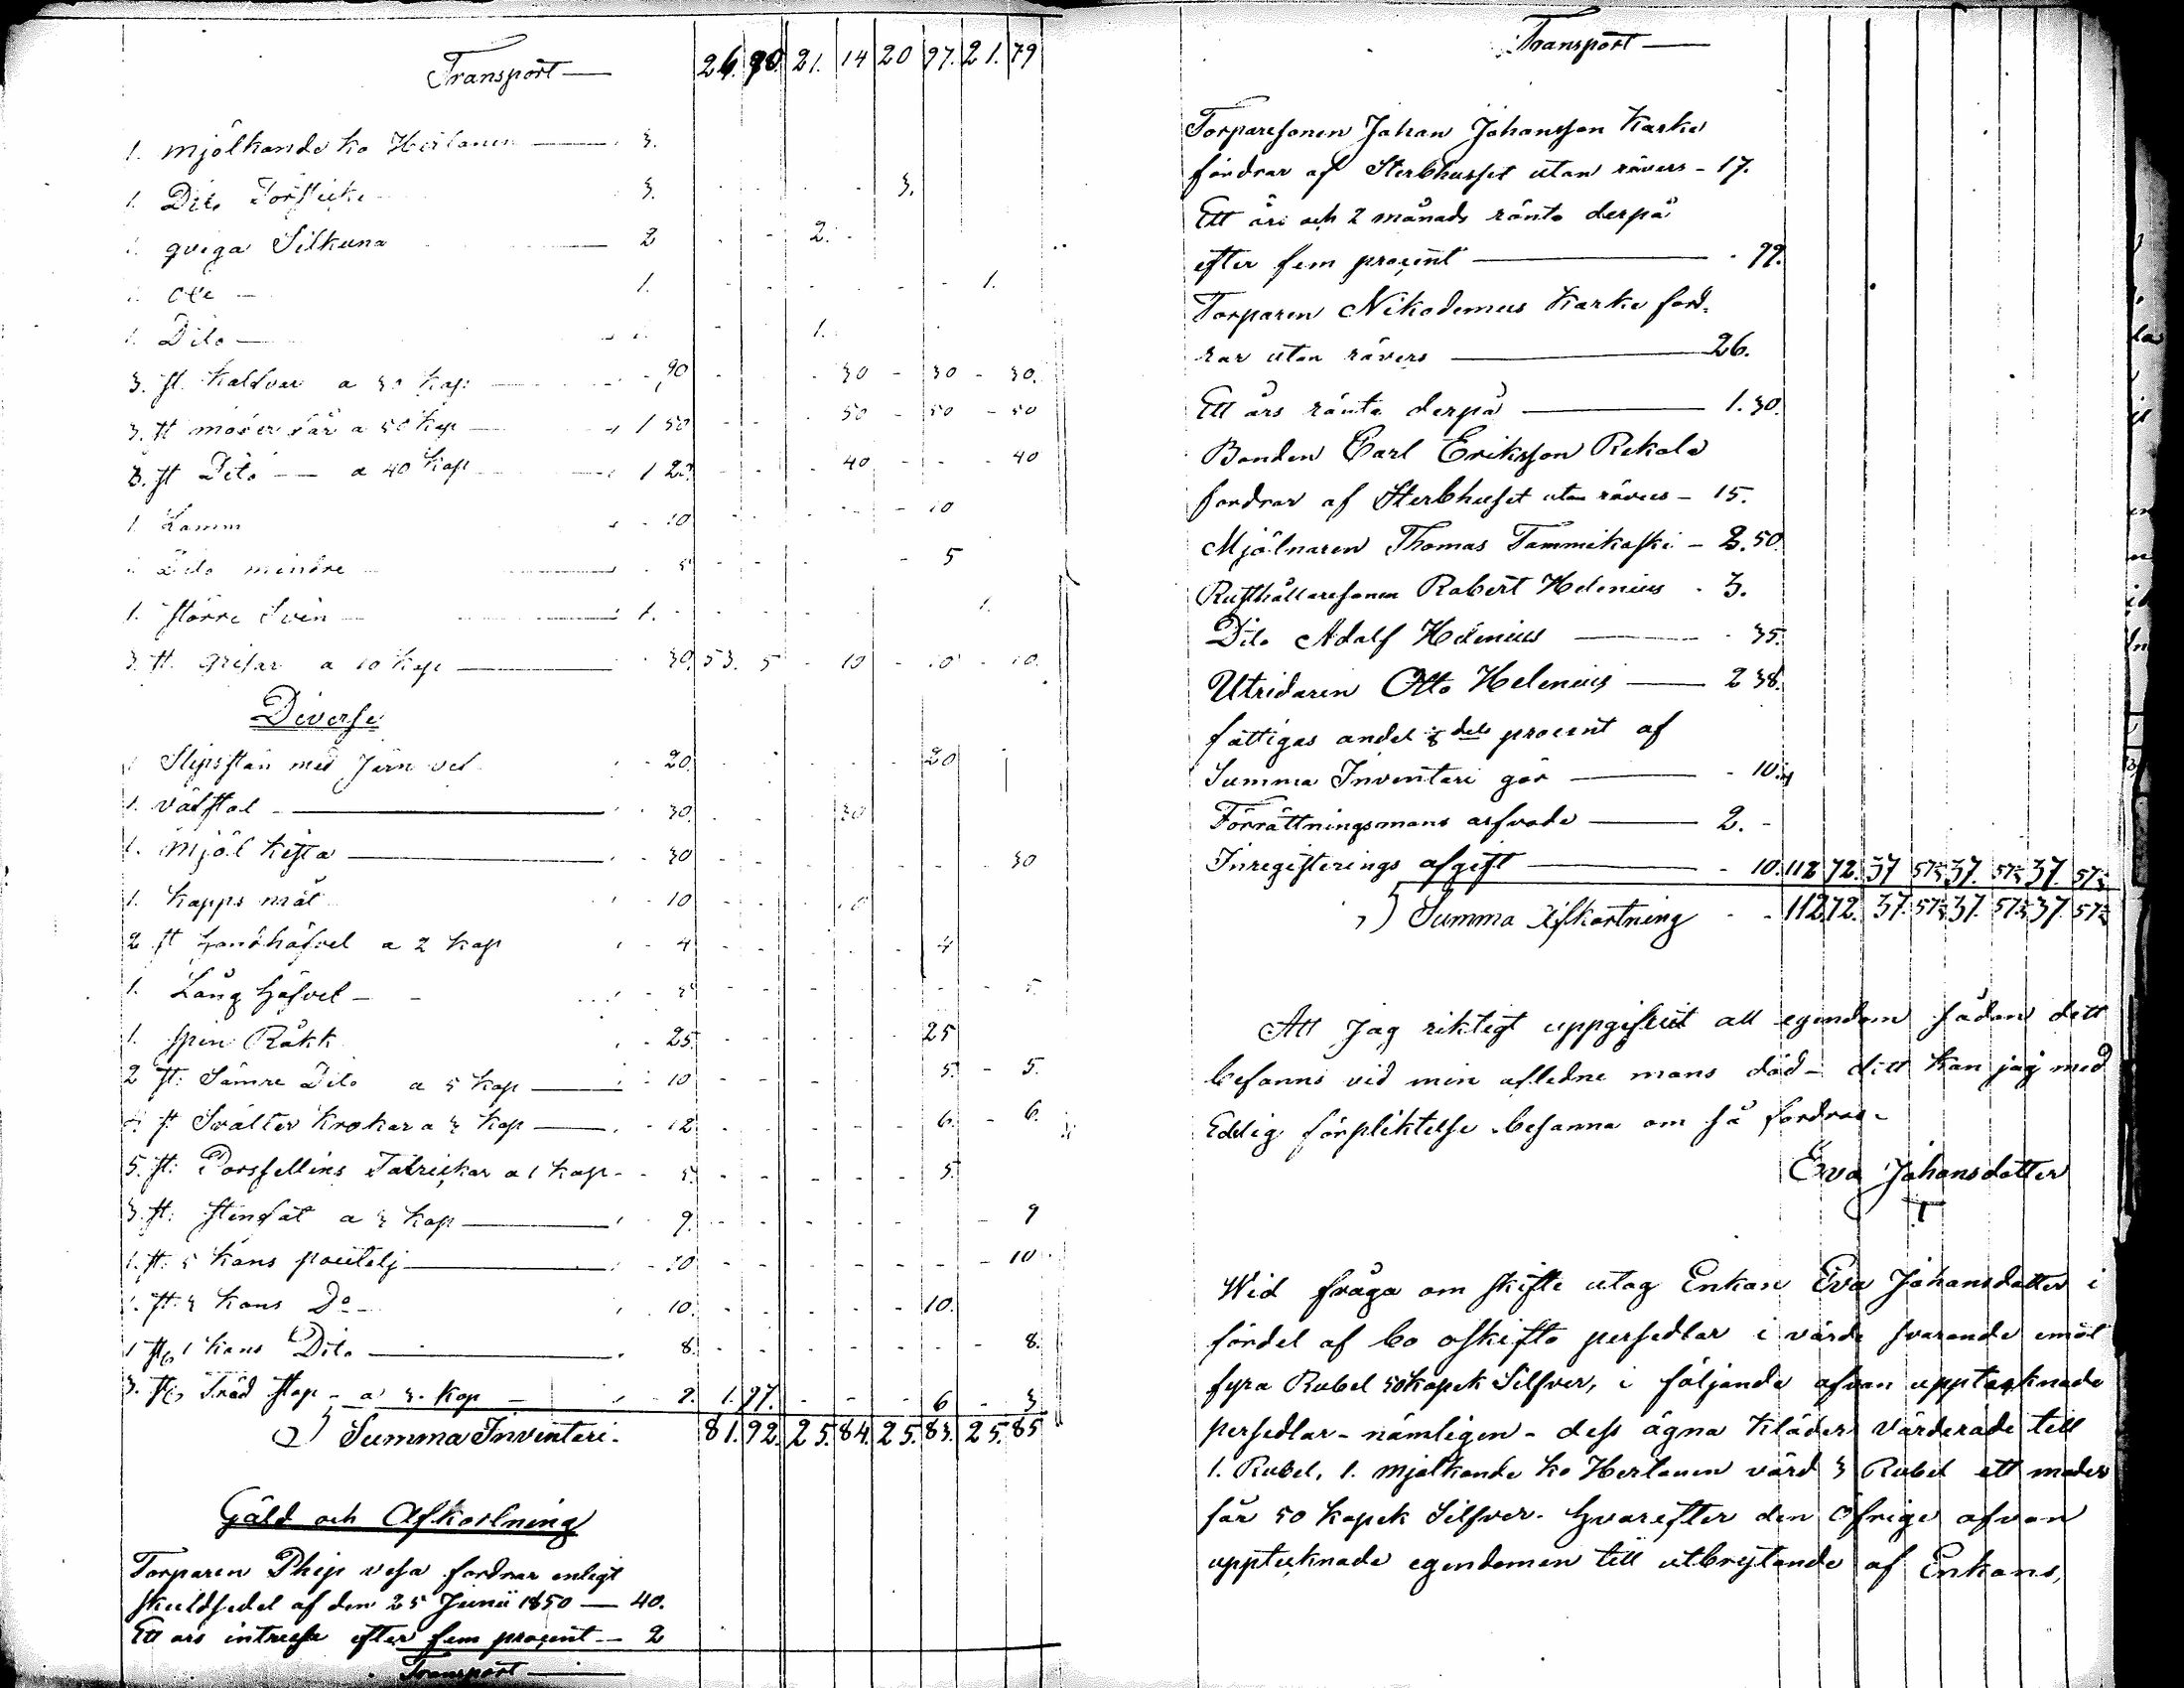 Transport — 26. 90. 21. 14 20 97. 21. 79
1. mjölkande ko Herlouen — 3.
1. Dito Torstiike 3. - - - - 3.
1. qviga Silkuna — 2 - - 2. -
1. Oxe — 1. - - - - - - 1.
1. Dito — 1. - 1.
3. st. Kalfvar a 30 kop: — - 90 - - - 30 - 30 - 30.
3. st moder får a 50 kop — 1 50 - - - 50 - 50 - 50
3. st Dito — a 40 kop — 1 20. - - - 40 - - - 40
1. Lamm - 10 - - - - - 10
1. Dito mindre — - 5 - - - - 5
1. större Svin — 1. - - - - - - 1.
3. st. grisar a 10 kop — - 30. 53. 5 - 10 - 10 - 10.
Diverse
1 Slipstan med Järn vef - 20. - - - - - 20
1. väfstol — - 30. - - - 30
1. Mjöl kista — - 30 - - - - - - - 30
1. kapps mål - 10 - - - 10
2 st Handhäfvel a 2 kop - 4 - - - - - 4
1. Lång häfvel — - 5 - - - - - - - 5.
1. spin Råkk - 25. - - - - - 25
2 st: Sämre Dito a 5 kop — - 10 - - - - - 5. - 5.
4. st Svälter krokar a 3 kop — - 12 - - - - - 6. - 6.
5. st: Porssellins Talrickar a 1 kop - - 5. - - - - - 5.
3. st: stenfat a 3 kop — - 9. - - - - - - - 9
1. st: 5 kans poutelj — - 10 - - - - - - - 10
1. st: 3 kans Do — - 10. - - - - - 10.
1 st, 1 kans Dito — - 8. - - - - - - - 8.
3. st, Träd stop - a 3. kop — - 9. 1. 97. - - - 6 - 3
Summa Inventari. 81. 92. 25. 84. 25. 83. 25. 85
Gäld och Afkortning
Torparen Phip vesa fordrar enligt
skuldsedel af den 25 Junii 1850 — 40.
Ett års intresse efter fem procent — 2
Transport —
Transport —
Torparesonen Johan Johansson Karke
fordrar af Sterbhusset utan rävers - 17.
Ett års och 2 månads ränta derpå
efter fem procent — - 99.
Torparen Nikodemus Karke ford-
rar utan rävers — 26.
Ett års ränta derpå — 1. 30.
Bonden Carl Eriksson Rekola
fordrar af Sterbhuset utan rävers - 15.
Mjölnaren Thomas Tammikoski - 2. 50.
Rusthållaresonen Robert Helenius - 3.
Dito Adolf Helenius — - 35.
Utridaren Otto Helenius — 2 38.
fattigas andel 8 dels procent af
Summa Inventari gör — - 10.
Förrättningsmans arfvode — 2. -
Inregisterings afgift — - 10. 112 72. 37 57½ 37. 57½ 37. 57½
Summa Afkortning - - 112 72. 37. 57½ 37. 57½ 37. 57½
Att jag riktigt uppgifvit all egendom sådan dett
befanns vid min afledne mans död - dett kan jag med
Edelig förpliktelse besanna om så fordras.
Eva Johansdotter
Wid fråga om skifte utog Enkan Eva Johansdotter i
fördel af bo oskifto persedlar i värde svarande emot
fyra Rubel 50 kopek Silfver, i följande ofvan upptecknade
persedlar - nämligen - dess ägna kläder värderade till
1. Rubel, 1. mjölkande ko Herlouen värd 3 Rubel ett moder
får 50 kopek Silfver. Hvarefter den öfriga ofvan
upptecknade egendomen till utbrytande af Enkans,